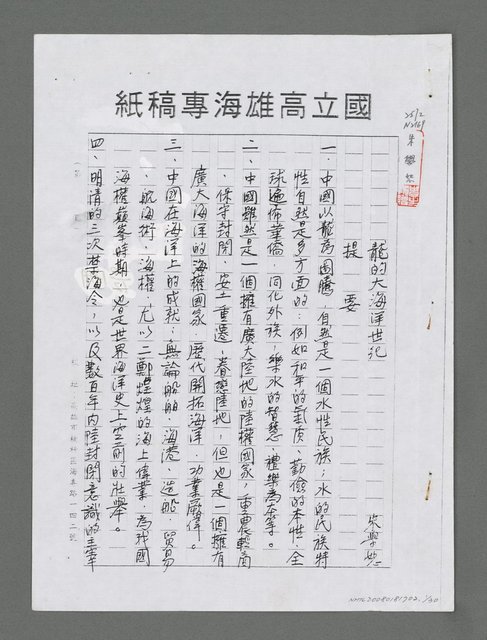 國立高雄海專稿紙
龍的大海洋世紀
朱學恕
提 要
一、中國以龍為圖騰，自然是一個水性民族；水的民族特
性自然是多方面的：例如和平的氣質，勤儉的本性，全
球遍佈華僑，同化外族，樂水的智慧，禮樂為本等。
二、中國雖然是一個擁有廣大陸地的陸權國家，重農輕商
、保守封閉，安土重遷，眷戀陸地，但也是一個擁有
廣大海洋的海權國家，歷代開拓海洋，功業厥偉。
三、中國在海洋上的成就，無論船舶、海港、造船、貿易
、航海術、海權，尤以二鄭煌煌的海上偉業，為我國
海權巔峯時期，也是世界海洋史上空前的壯舉。
四、明清的三次禁海令，以及數百年內陸封閉意識的主宰
2512
N2969
朱學恕
NMTL20080181702. 1/30